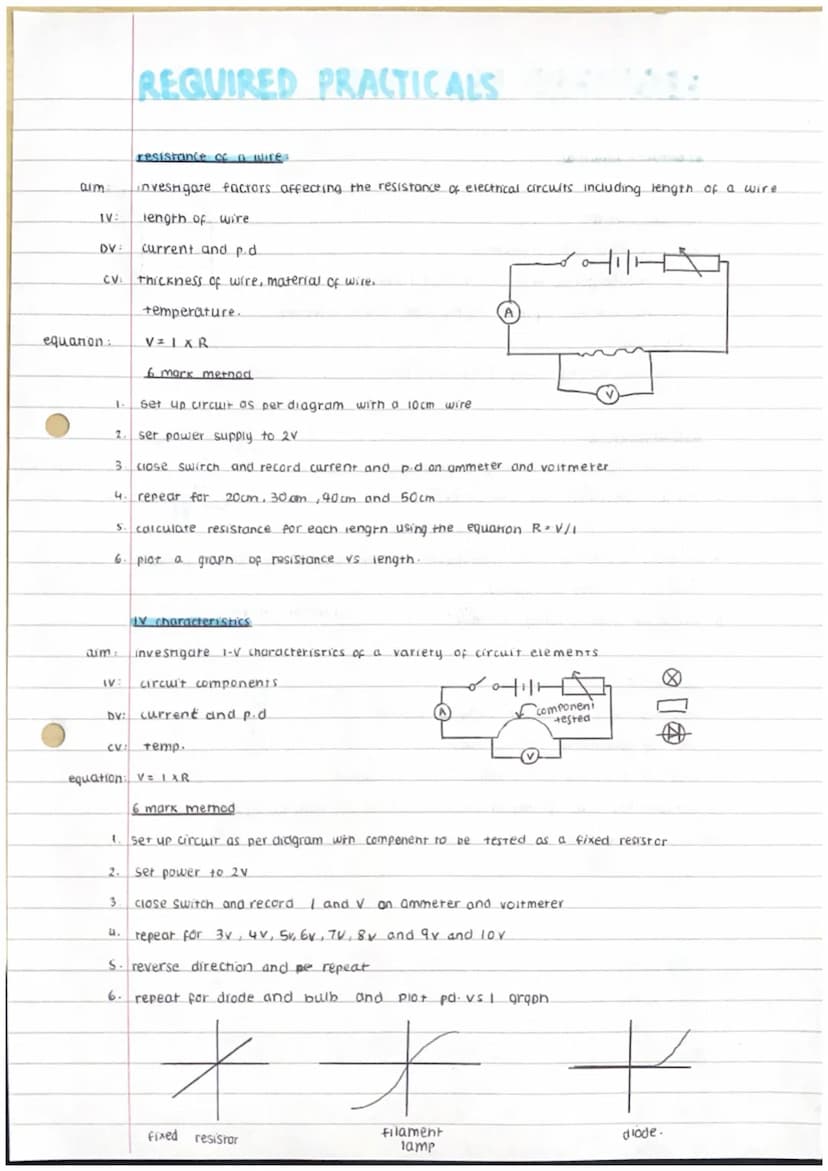 REQUIRED PRACTICALS
resistance of a wire:
aim: investigate factors affecting the resistance of electrical circuits including length of a wire
IV: length of wire
DV: current and p.d
CV: thickness of wire, material of wire,
temperature.
A
equation: V = I x R
6 mark method
V
1. set up circuit as per diagram with a 10cm wire
2. set power supply to 2V
3 close switch and record current and p.d on ammeter and voltmeter
4. repeat for 20cm, 30cm, 40cm and 50cm
5. calculate resistance for each length using the equation R = V/I
6. plot a graph of resistance vs length.
IV characteristics
aim: investigate I-V characteristics of a variety of circuit elements
IV: circuit components
DV: current and p.d
A
component
tested
CV: Temp.
V
equation: V = I x R
6 mark method
1. set up circuit as per diagram with component to be tested as a fixed resistor
2. set power to 2V
3 close switch and record I and V on ammeter and voltmeter
4. repeat for 3v, 4v, 5v, 6v, 7v, 8v and 9v and 10v
5. reverse direction and repeat
6. repeat for diode and bulb and plot pd. vs I graph
fixed resistor
filament
lamp
diode.